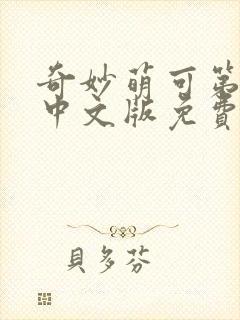 奇妙萌可第
中文版免費
貝多芬